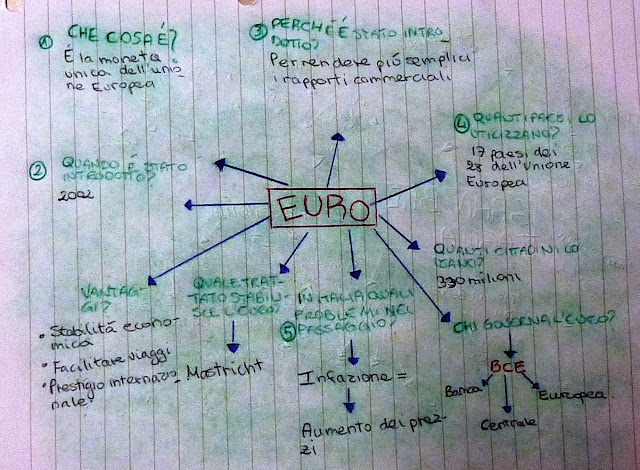 ① CHE COSA È?
È la moneta
unica dell'unio_
ne Europea
③ PERCHÉ È STATO INTRO_
DOTTO?
Per rendere più semplici
i rapporti commerciali
④ QUANTI PAESI LO
UTILIZZANO?
17 paesi dei
28 dell'Unione
Europea
② QUANDO È STATO
INTRODOTTO?
2002
EURO
QUANTI CITTADINI LO
330 milioni
VANTAG-
GI?
• Stabilità econo-
mica
• Facilitare viaggi
• Prestigio internazio_
nale.
QUALE TRAT-
TATO STABILI-
SCE L'EURO?
Mastricht
IN ITALIA QUALI
PROBLEMI NEL
⑤ PASSAGGIO?
Infazione =
Aumento dei prez-
zi
CHI GOVERNA L'EURO?
BCE
Banca
Centrale
Europea.